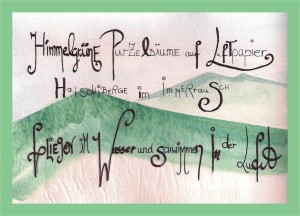 Himmelgrüne Purzelbäume auf Luftpapier
Hatschiberge im Immerrausch
fliegen im Wasser und schwimmen in der Luft